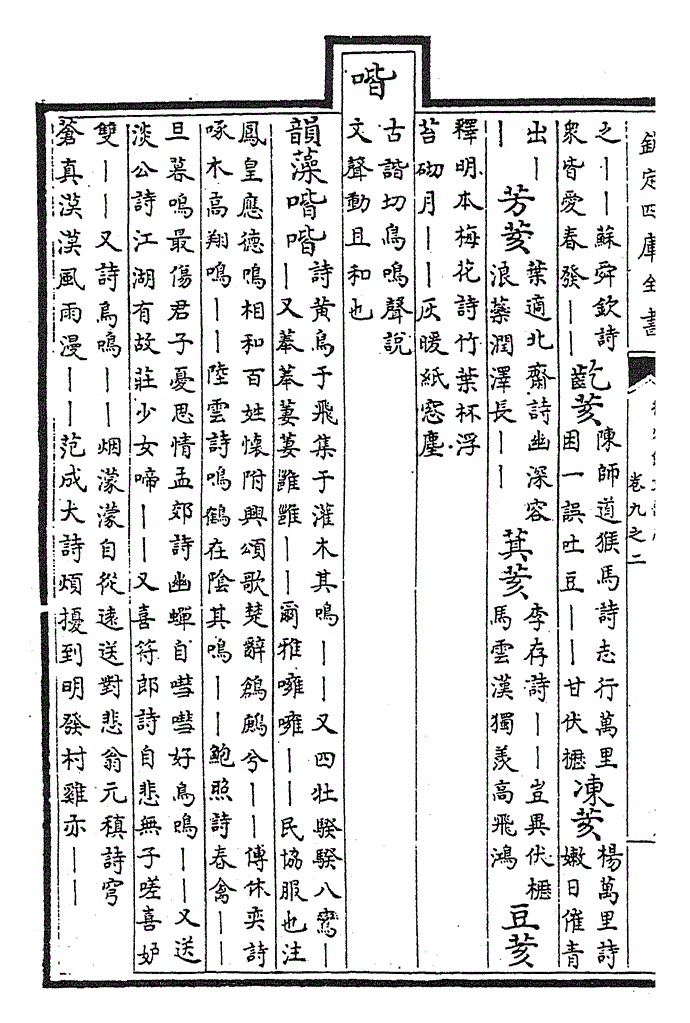 欽定四庫全書
卷九之二
之｜｜蘇舜欽詩
衆皆愛春發｜｜
齕荄
陳師道猴馬詩志行萬里
困一誤吐豆｜｜甘伏櫪
凍荄
楊萬里詩
嫩日催青
出｜
芳荄
葉適北齋詩幽深容
浪蘂潤澤長｜｜
萁荄
李存詩｜｜豈異伏櫪
馬雲漢獨羨高飛鴻
豆荄
｜
釋明本梅花詩竹葉杯浮
苔砌月｜｜灰暖紙窓塵
喈
古諧切鳥鳴聲說
文聲動且和也
韻藻
喈喈
詩黃鳥于飛集于灌木其鳴｜｜又四牡騤騤八鸞｜
｜又菶菶萋萋雝雝｜｜爾雅噰噰｜｜民協服也注
鳳皇應德鳴相和百姓懷附興頌歌楚辭鵾鵰兮｜｜傅休奕詩
啄木高翔鳴｜｜陸雲詩鳴鶴在陰其鳴｜｜鮑照詩春禽｜｜
旦暮鳴最傷君子憂思情孟郊詩幽蟬自嘒嘒好鳥鳴｜｜又送
淡公詩江湖有故莊少女啼｜｜又喜符郎詩自悲無子嗟喜妒
雙｜｜又詩鳥鳴｜｜烟濛濛自從遠送對悲翁元稹詩穹
蒼真漠漠風雨漫｜｜范成大詩煩擾到明發村雞亦｜｜